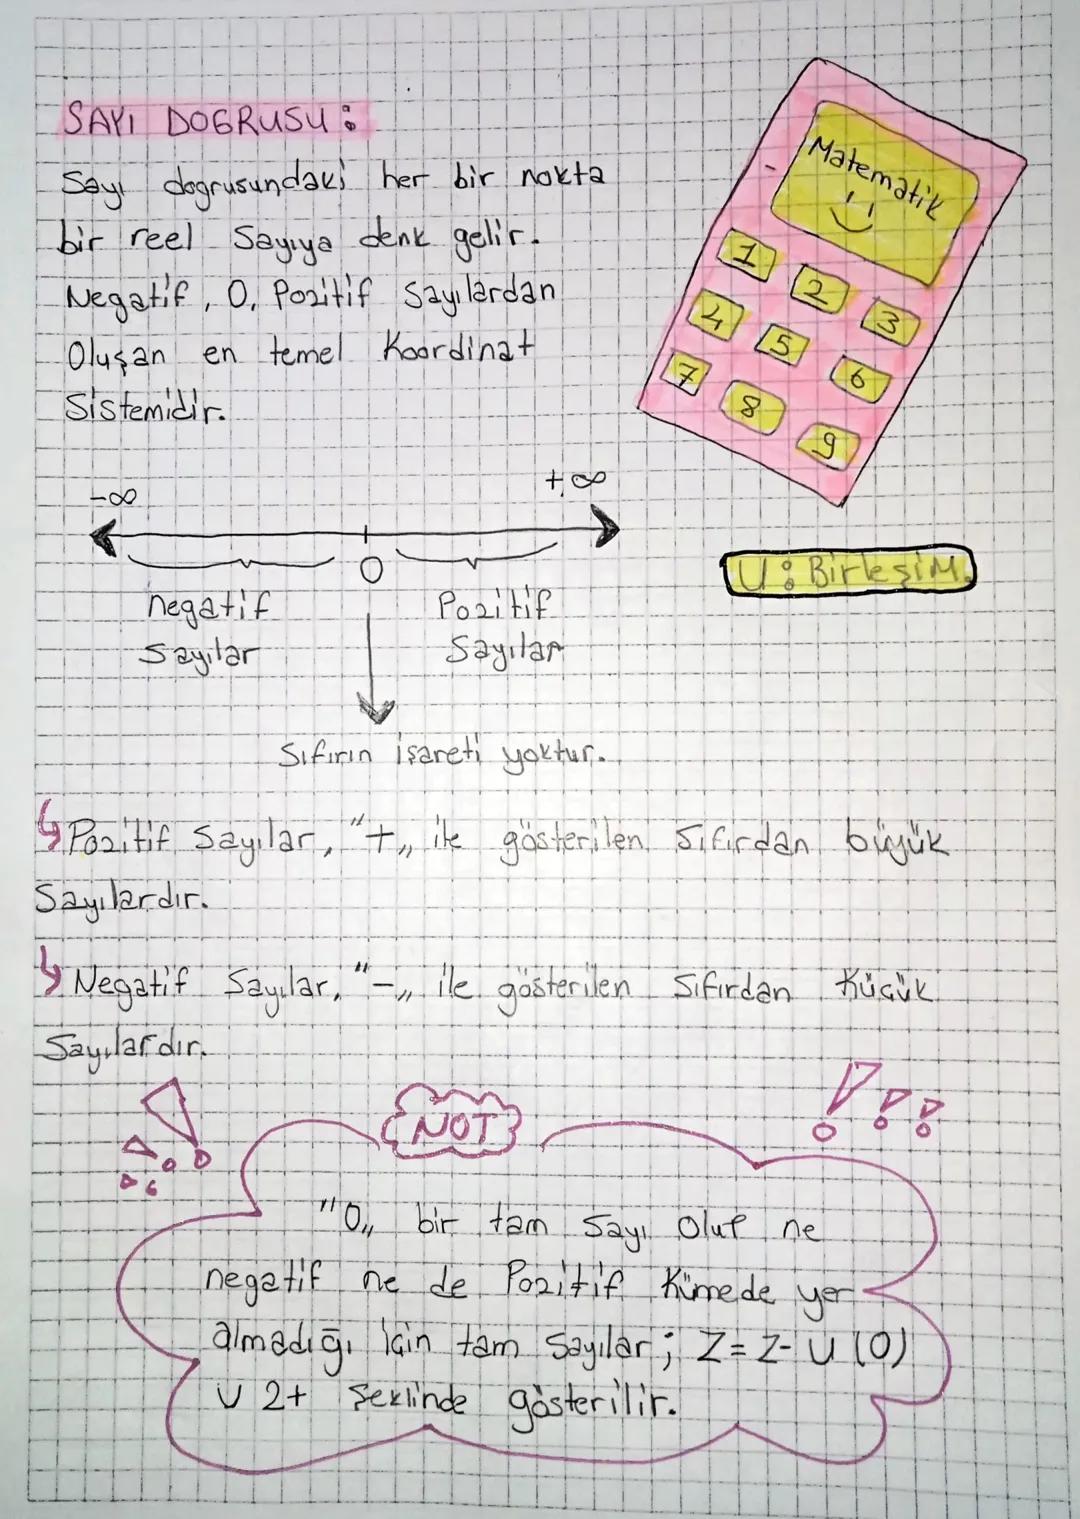 SAYI DOGRUSU:
Sayı dogrusundaki her bir nokta
bir reel Sayıya denk gelir.
Negatif, 0, Pozitif Sayılardan
Oluşan en temel Koordinat
Sistemidir.
Matematik
1 2 3
4 5 6
7 8 9
-∞ +∞
0
U: Birleşim.
negatif Pozitif
Sayılar Sayılar
Sıfırın işareti yoktur.
↳ Pozitif Sayılar, "+„ ile gösterilen Sıfırdan büyük
Sayılardır.
↳ Negatif Sayılar, "-„ ile gösterilen Sıfırdan Küçük
Sayılardır.
NOT
"0„ bir tam Sayı Olup ne
negatif ne de Pozitif Kümede yer
almadığı için tam Sayılar; Z=Z- U (0)
U 2+ Şeklinde gösterilir.